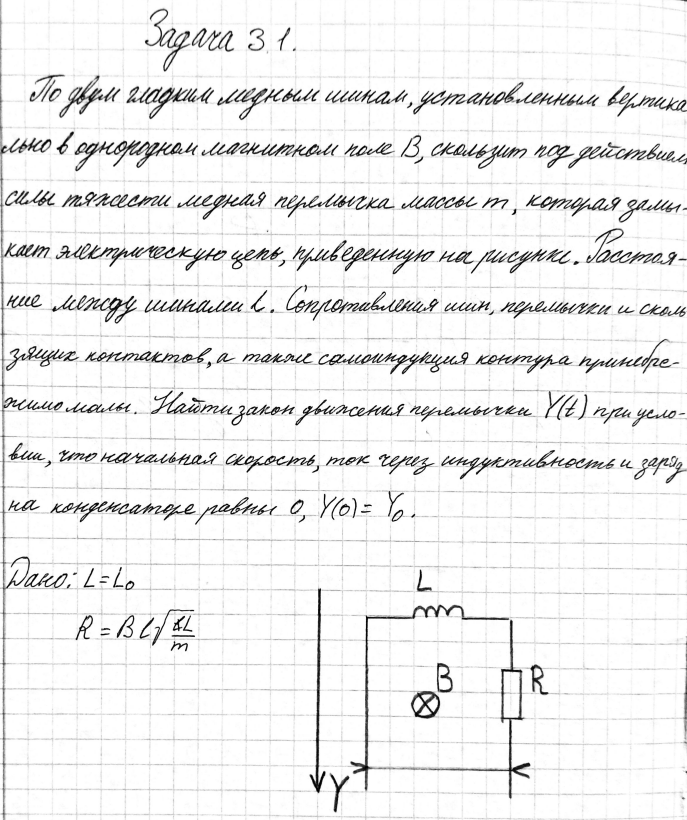 Задача 3.1.
По двум гладким медным шинам, установленным вертика
льно в однородном магнитном поле B, скользит под действием
силы тяжести медная перемычка массы m, которая замы-
кает электрическую цепь, приведенную на рисунке. Расстоя-
ние между шинами l. Сопротивления шин, перемычки и сколь
зящих контактов, а также самоиндукция контура принебре-
жимо малы. Найти закон движения перемычки Y(t) при усло-
вии, что начальная скорость, ток через индуктивность и заряд
на конденсаторе равны 0, Y(0) = Y₀.
Дано: L = L₀
R = Bl√(4L/m)
L
B
R
Y